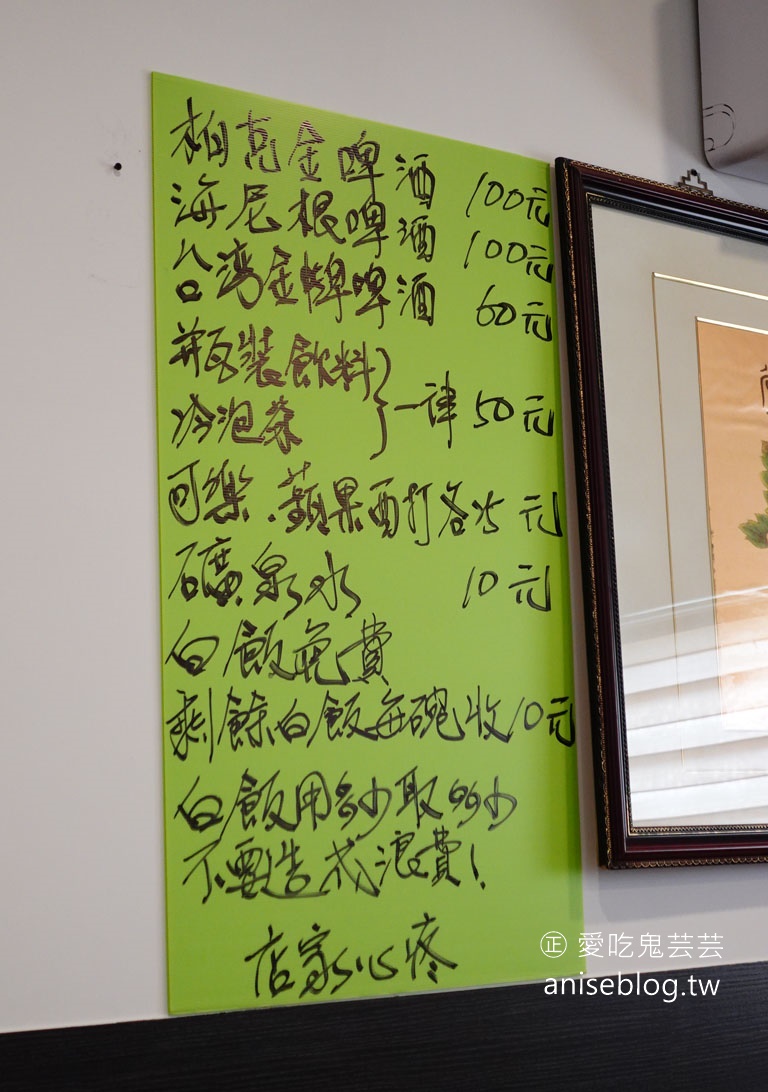 柏克金啤酒 100元
海尼根啤酒 100元
台湾金牌啤酒 60元
瓶裝飲料
冷泡茶 一律50元
可樂.蘋果西打各45元
礦泉水 10元
白飯免費
剩餘白飯每碗收10元
白飯用多少取多少
不要造成浪費!
店家心疼
正 愛吃鬼芸芸
aniseblog.tw